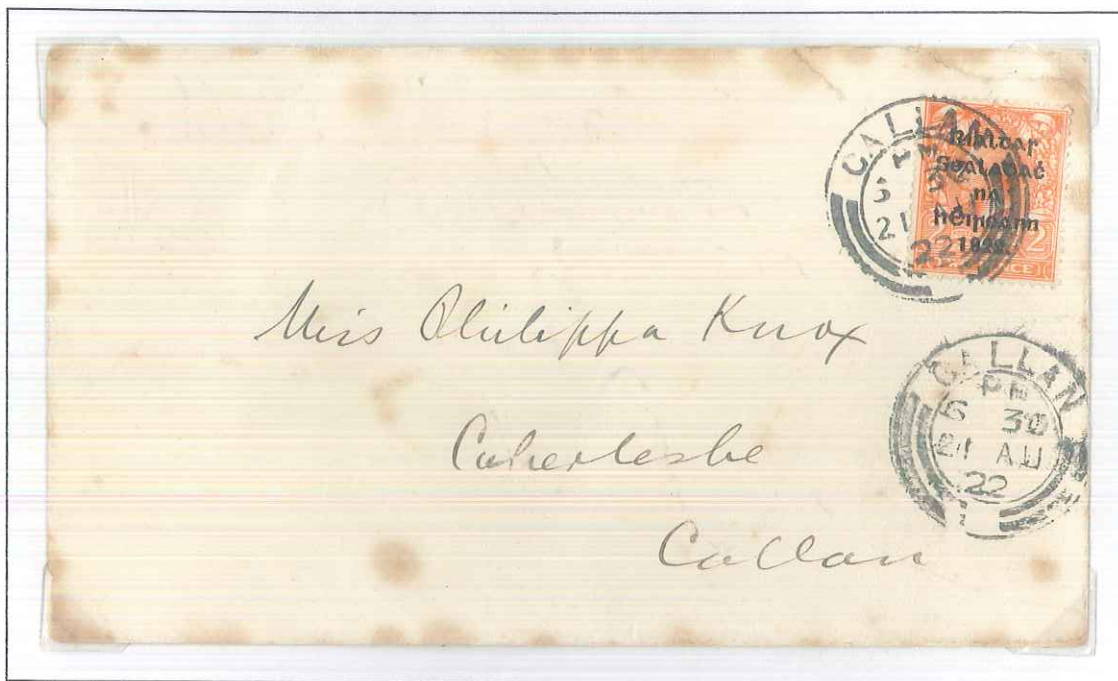 CALLAN
PM
21
22
Rialtar
Sealadaċ
na
hÉireann
1922
2
Miss Philippa Knox
Caherleske
Callan
CALLAN
PM
6 30
21 AU
22